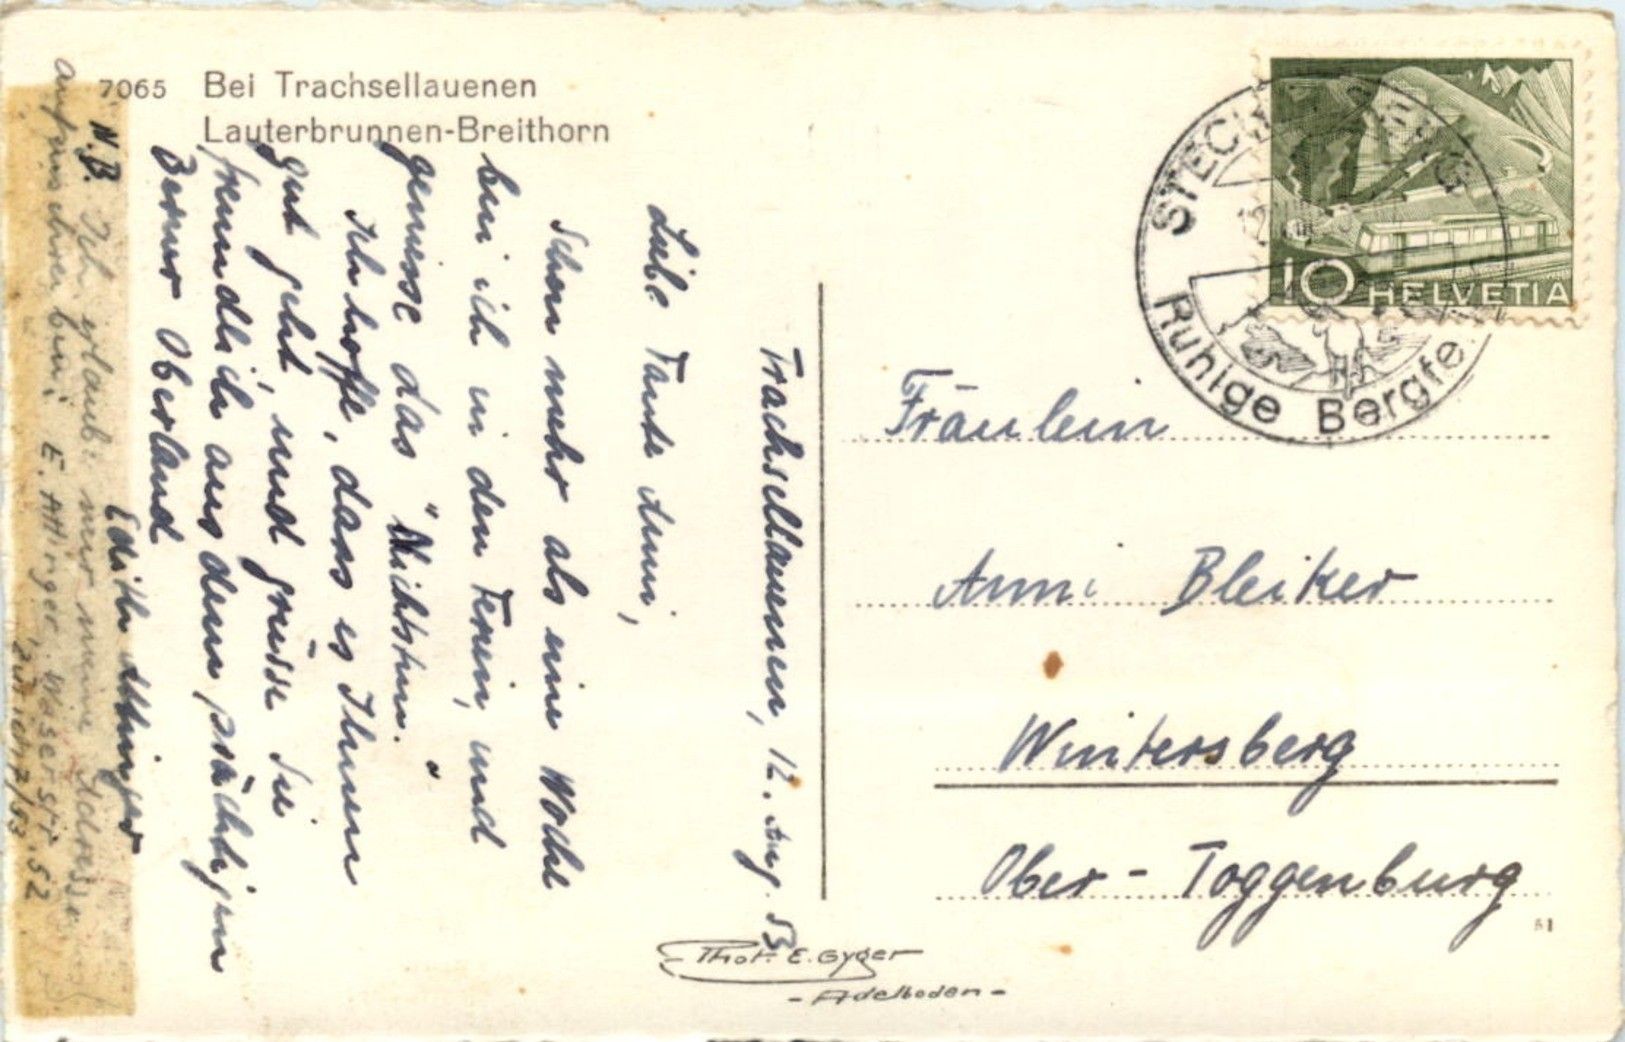 7065 Bei Trachsellauenen
Lauterbrunnen-Breithorn
Trachsellauenen, 12. Aug. 53
Liebe Tante Anni,
Schon mehr als eine Woche
bin ich in den Ferien, und
geniesse das "Nichtstun.“
Ich hoffe, dass es Ihnen
gut geht, und grüsse Sie
freundlich aus dem prächtigen
Berner Oberland
Edith Attinger
N.B. Ich glaube nur meine Adresse
aufzuschreiben:
E. Attinger, Waserstr. 52
Zürich 7/53
HELVETIA
10
STECHELBERG
Ruhige
Fräulein
Anni Bleiker
Wintersberg
Ober-Toggenburg
51
Phot. E. Gyger
- Adelboden -